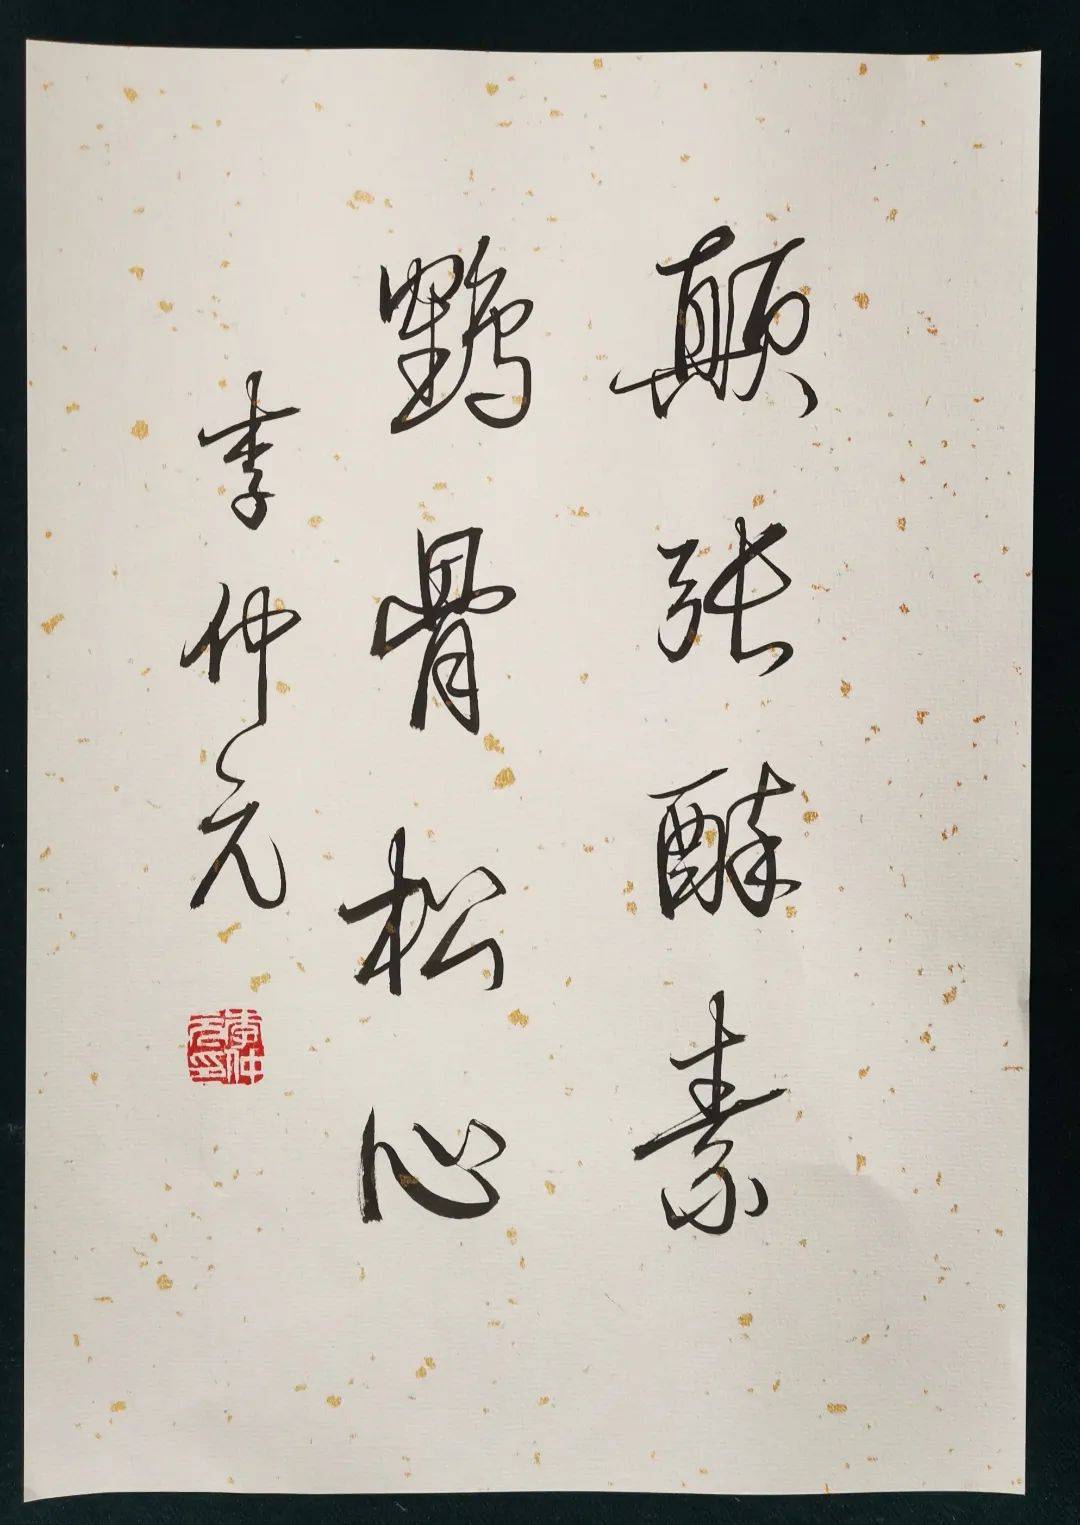 颠张醉素
鹤骨松心
李仲元
李仲元印